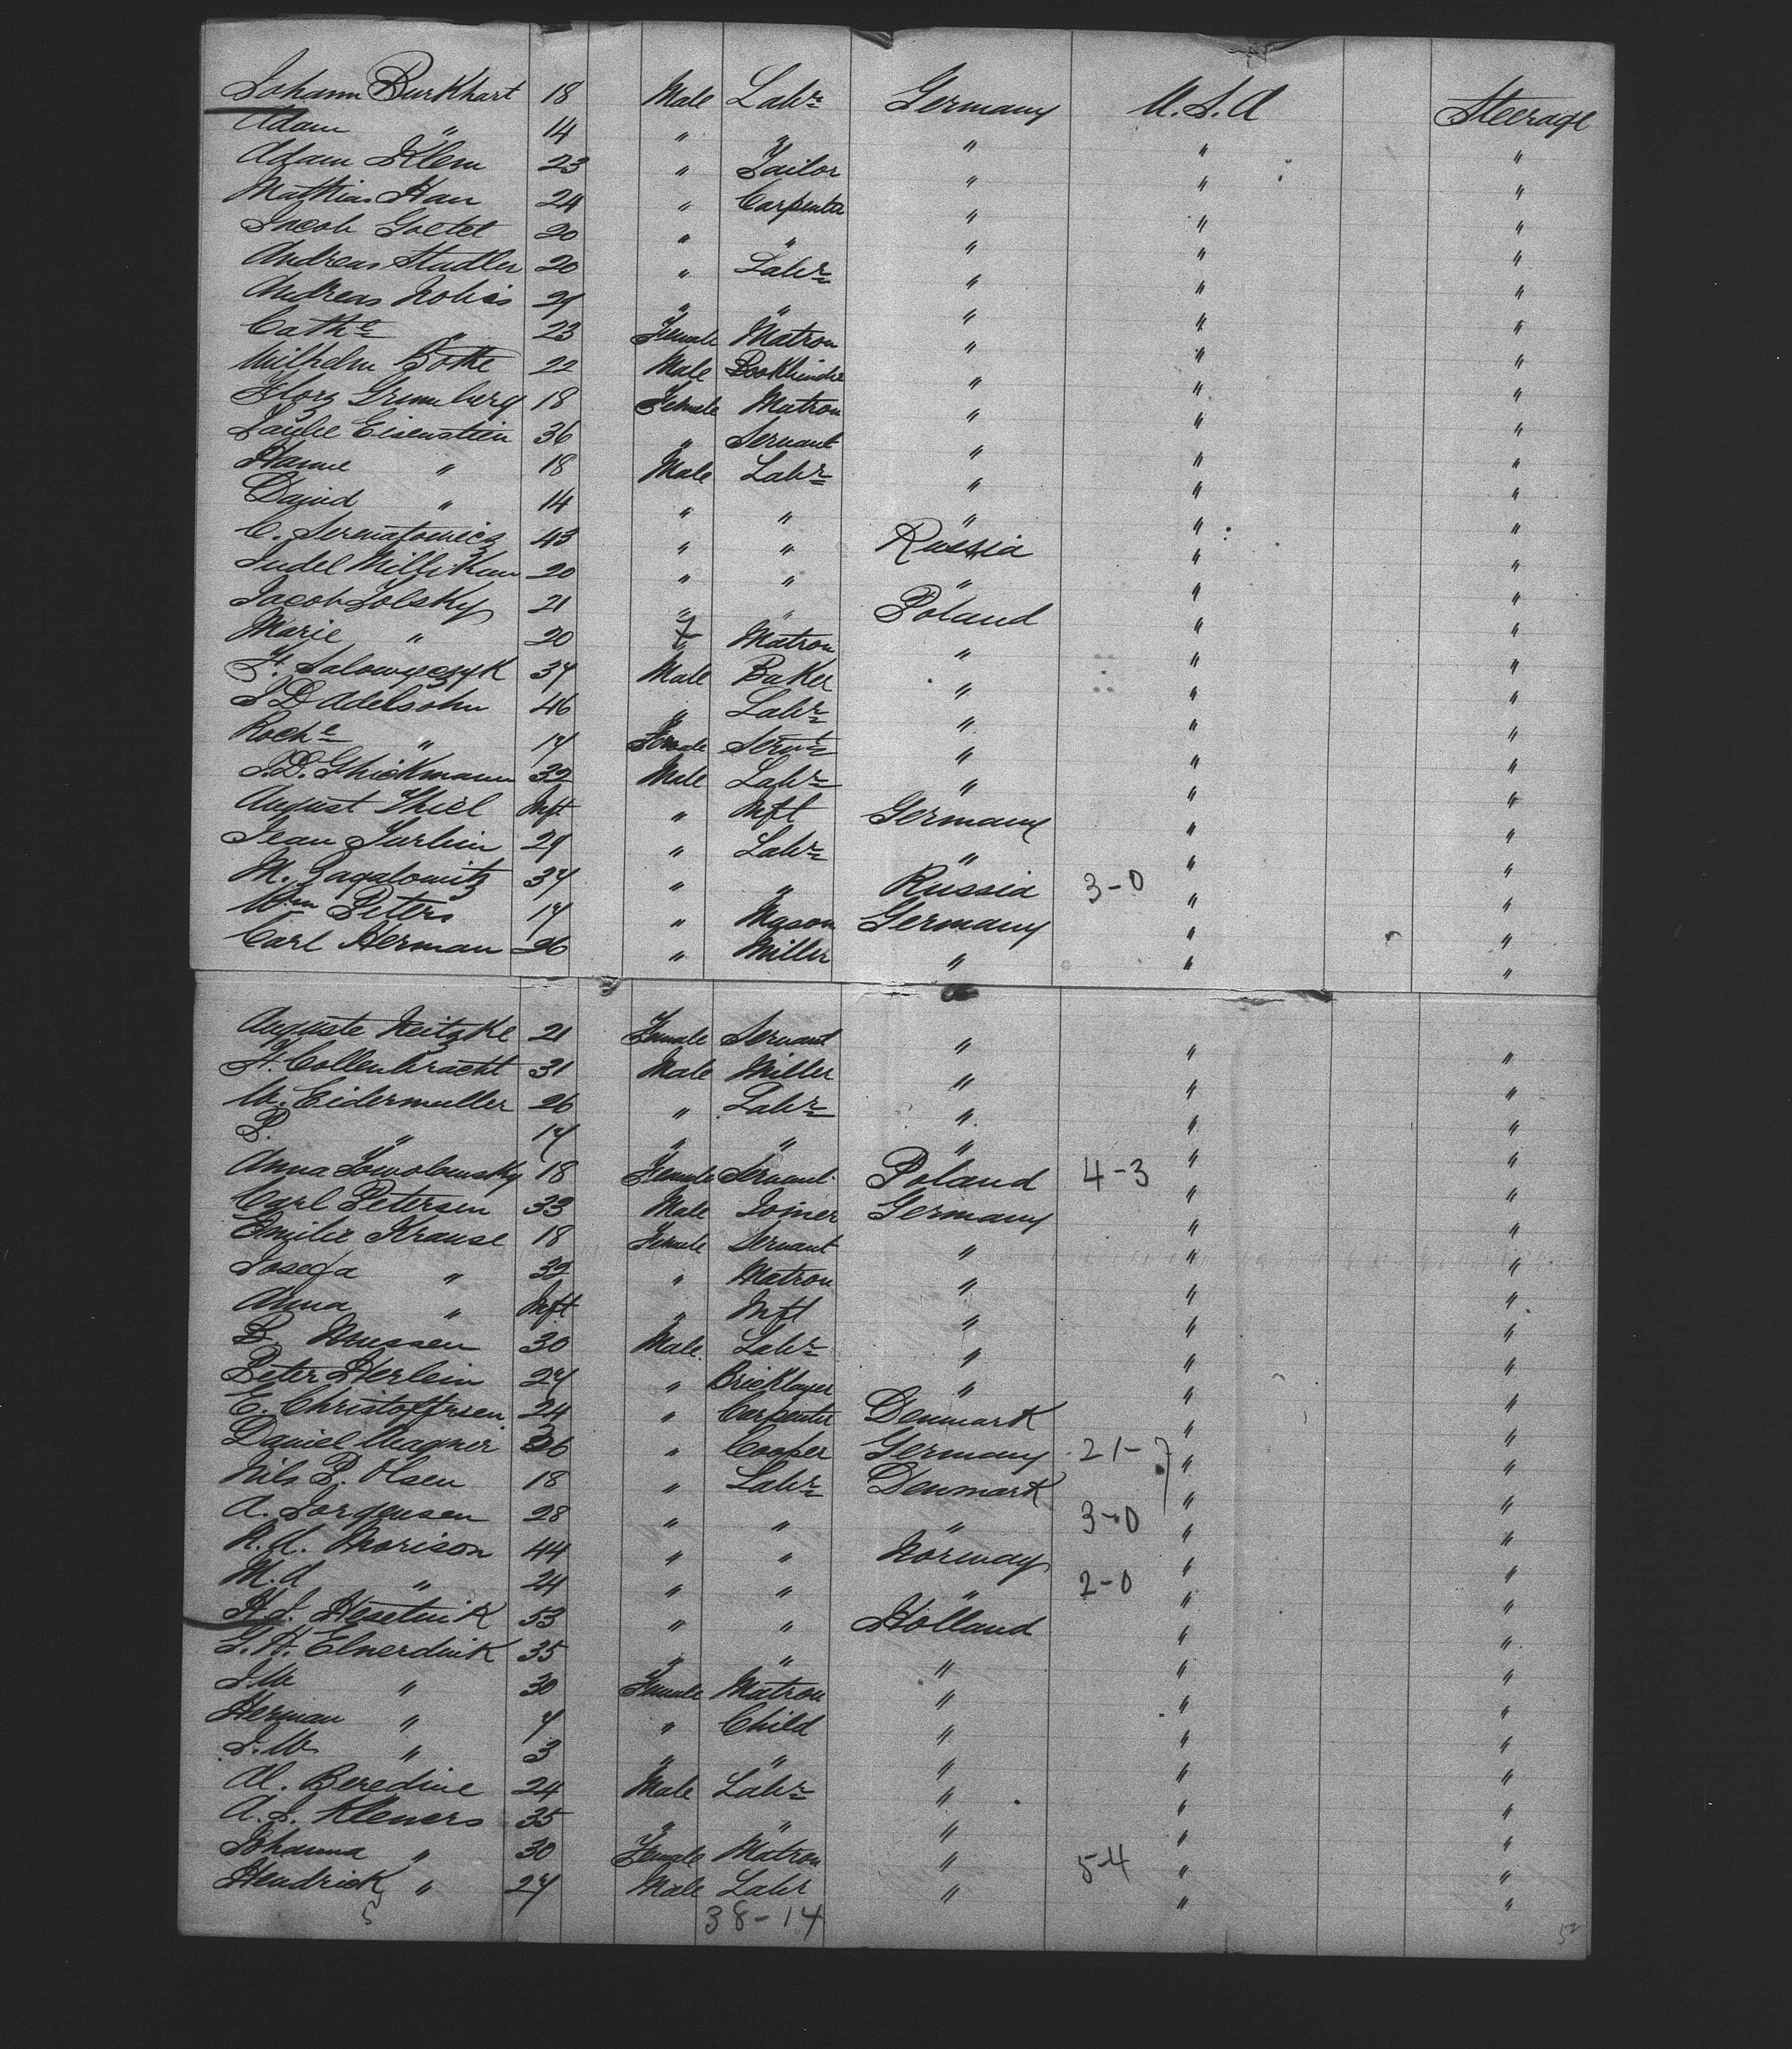 Johann Burkhart 18 Male Labr Germany U.S.A Steerage
Adam " 14 " " " " "
Adam Klem 23 " Tailor " " "
Mathias Hau 24 " Carpenter " " "
Jacob Goetel 20 " " " " "
Andreas Stadler 20 " Labr " " "
Andreas 29 " " " " "
Cathe " 23 Female Matron " " "
Wilhelm Bothe 22 Male Bookbinder " " "
Flora Grunberg 18 Female Matron " " "
Eisenstein 36 " Servant " " "
Hanne " 18 Male Labr " " "
David " 14 " " " " "
C. 43 " " Russia " "
Judel Millikan 20 " " " " "
Jacob Tolsky 21 " " Poland " "
Marie " 20 f Matron " " "
34 Male Baker " " "
S D Adelsohn 46 " Labr " " "
Roche " 17 Female Servt " " "
S.D. Ghickmann 32 Male Labr " " "
August Thiel Inft " Inft Germany " "
Jean 29 " Labr " " "
M. Sagalowitz 34 " " Russia 3-0 " "
Wm Peters 17 " Mason Germany " "
Carl Herman 26 " Miller " " "
Auguste Neitzke 21 Female Servant " " "
H. Collenbracht 31 Male Miller " " "
W. Eidermuller 26 " Labr " " "
P. " 17 " " " " "
Anna 18 Female Servant Poland 4-3 " "
Carl Petersen 33 Male Joiner Germany " "
Emilie Krause 18 Female Servant " " "
Josefa " 32 " Matron " " "
Anna " Inft " Inft " " "
30 Male Labr " " "
Peter Herlein 27 " Bricklayer " " "
E. Christoffersen 24 " Carpenter Denmark " "
Daniel Wagner 36 " Cooper Germany 21-7 " "
Nils P. Olsen 18 " Labr Denmark " "
A. Jorgensen 28 " " " 3-0 " "
Morison 44 " " Norway " "
M.A " 24 " " " 2-0 " "
H.J. 53 " " Holland " "
Elnerdink 35 " " " " "
J.W " 30 Female Matron " " "
Herman " 7 " Child " " "
J.W. " 3 " " " " "
Al. Beredine 24 Male Labr " " "
A.J. Klewers 35 " " " " "
Johanna " 30 Female Matron " 5-4 " "
Hendrick " 27 Male Labr " " "
5 38-14 52